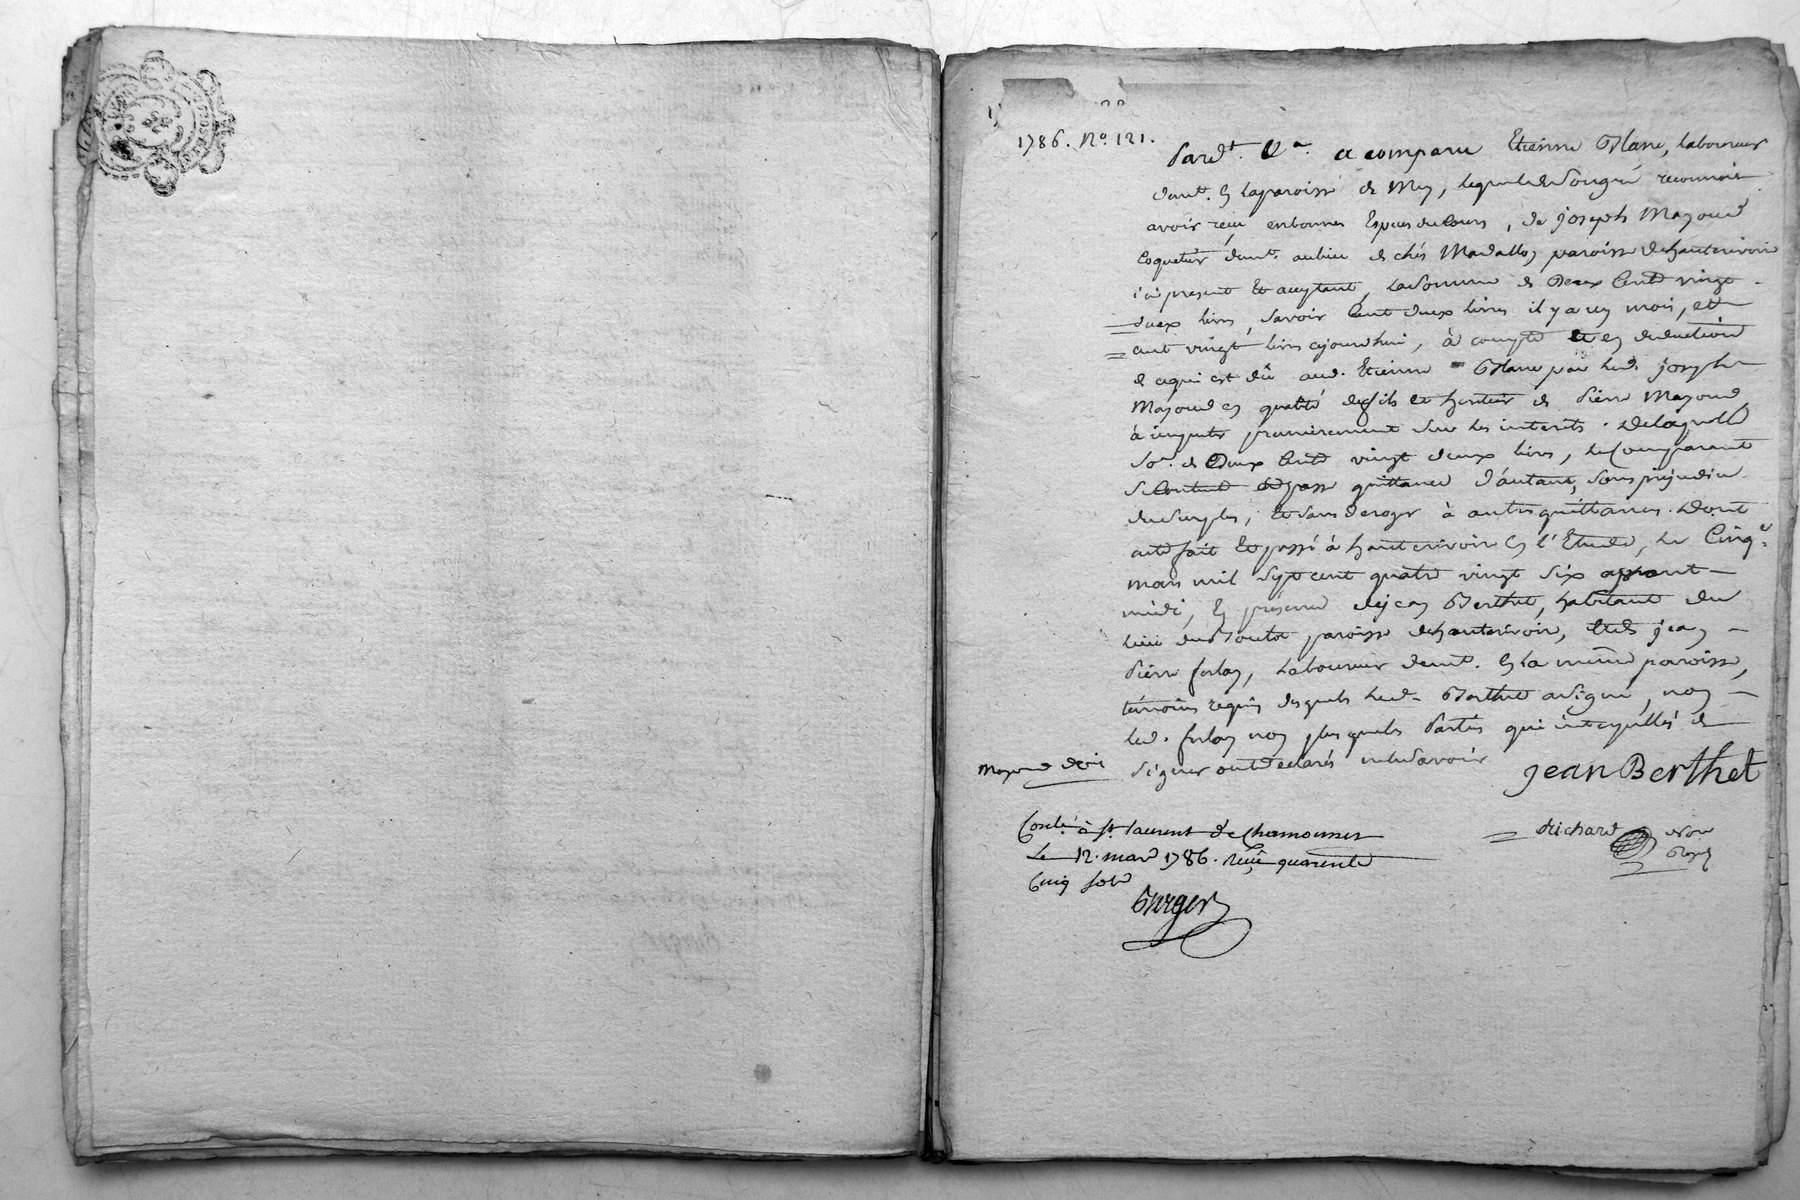 1786. N.o 121.
Pard.t N.re a comparu Etienne Blanc, laboureur
dem.t en la paroisse de Mey, lequel de son gré reconnoit
avoir reçu en bonnes Especes de Cours, de joseph Mazoud
Coquetier dem.t au lieu de chés Madallon paroisse de hauterivoire
ici present et acceptant, la somme de Deux Cent vingt
deux livres, savoir Cent deux livres il y a un mois, et
cent vingt livres ajourdhui, à compte et en deduction
de ce qui est dû aud. Etienne Blanc par led. joseph
Mazoud en qualité de fils et heritier de Pierre Mazoud,
à imputer premierement sur les interets. De laquelle
So.e de Deux Cent vingt deux livres, le Comparant
se Contente et passe quittance d'autant, sans prejudice
du surplus, et sans deroger à autres quittances. Dont
acte fait et passé à hauterivoire en l'Etude, le Cinq.e
mars mil sept cent quatre vingt six apprant
midi, en présence de jean Berthet, habitant du
lieu du paroisse de hauterivoire, et de jean
Pierre forlay, Laboureur dem.t en la même paroisse,
témoins requis desquels led. Berthet a signé, non
led. forlay non plus que les Parties qui interpellés de
signer ont declarés ne le savoir
Mazoud doit
jean Berthet
Richard
Not.re
Royal
Conlé à St. laurent de Chamousset
Le 12. mars 1786. reçu quarente
Cinq sols
Burger